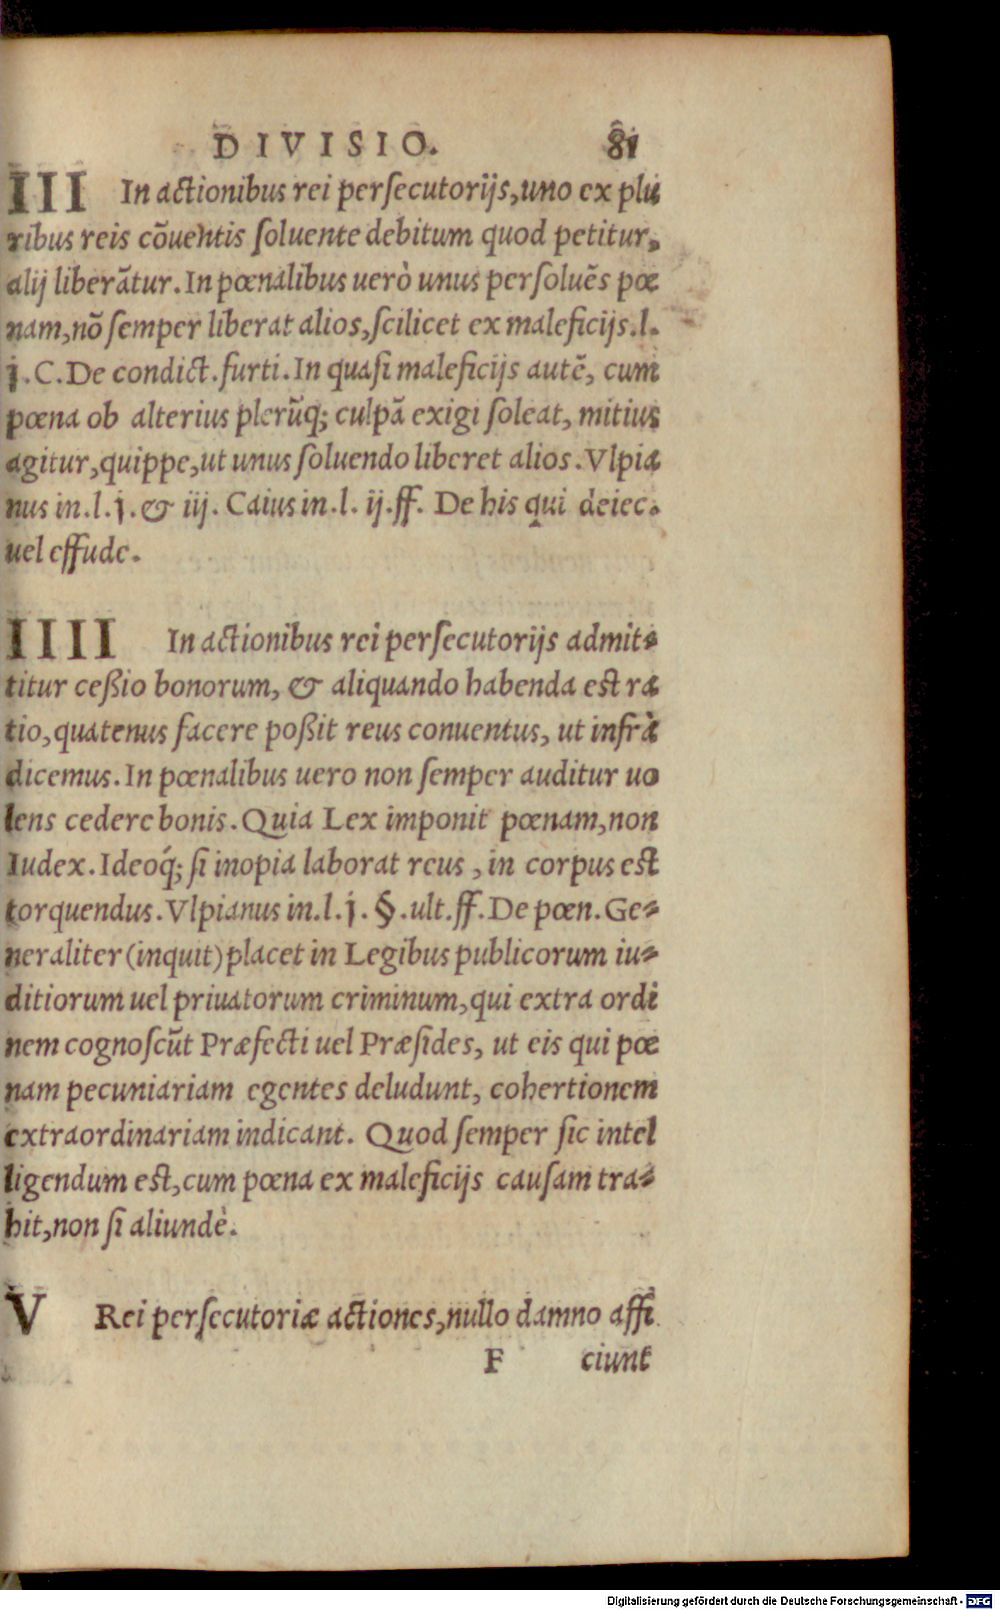 DIVISIO. 81
III In actionibus rei persecutorijs, uno ex plu
ribus reis cōuentis soluente debitum quod petitur,
alij liberātur. In pœnalibus uerò unus persoluēs pœ
nam, nō semper liberat alios, scilicet ex maleficijs. l.
j. C. De condict. furti. In quasi maleficijs autē, cum
pœna ob alterius plerūq; culpā exigi soleat, mitius
agitur, quippe, ut unus soluendo liberet alios. Vlpia
nus in. l. j. & iij. Caius in. l. ij. ff. De his qui deiec.
uel effude.
IIII In actionibus rei persecutorijs admit-
titur ceßio bonorum, & aliquando habenda est ra
tio, quatenus facere poßit reus conuentus, ut infrà
dicemus. In pœnalibus uero non semper auditur uo
lens cedere bonis. Quia Lex imponit pœnam, non
Iudex. Ideoq́; si inopia laborat reus, in corpus est
torquendus. Vlpianus in. l. j. §. ult. ff. De pœn. Ge-
neraliter (inquit) placet in Legibus publicorum iu-
ditiorum uel priuatorum criminum, qui extra ordi
nem cognoscūt Præfecti uel Præsides, ut eis qui pœ
nam pecuniariam egentes deludunt, cohertionem
extraordinariam indicant. Quod semper sic intel
ligendum est, cum pœna ex maleficijs causam tra-
hit, non si aliundè.
V Rei persecutoriæ actiones, nullo damno affi
F ciunt
Digitalisierung gefördert durch die Deutsche Forschungsgemeinschaft - DFG